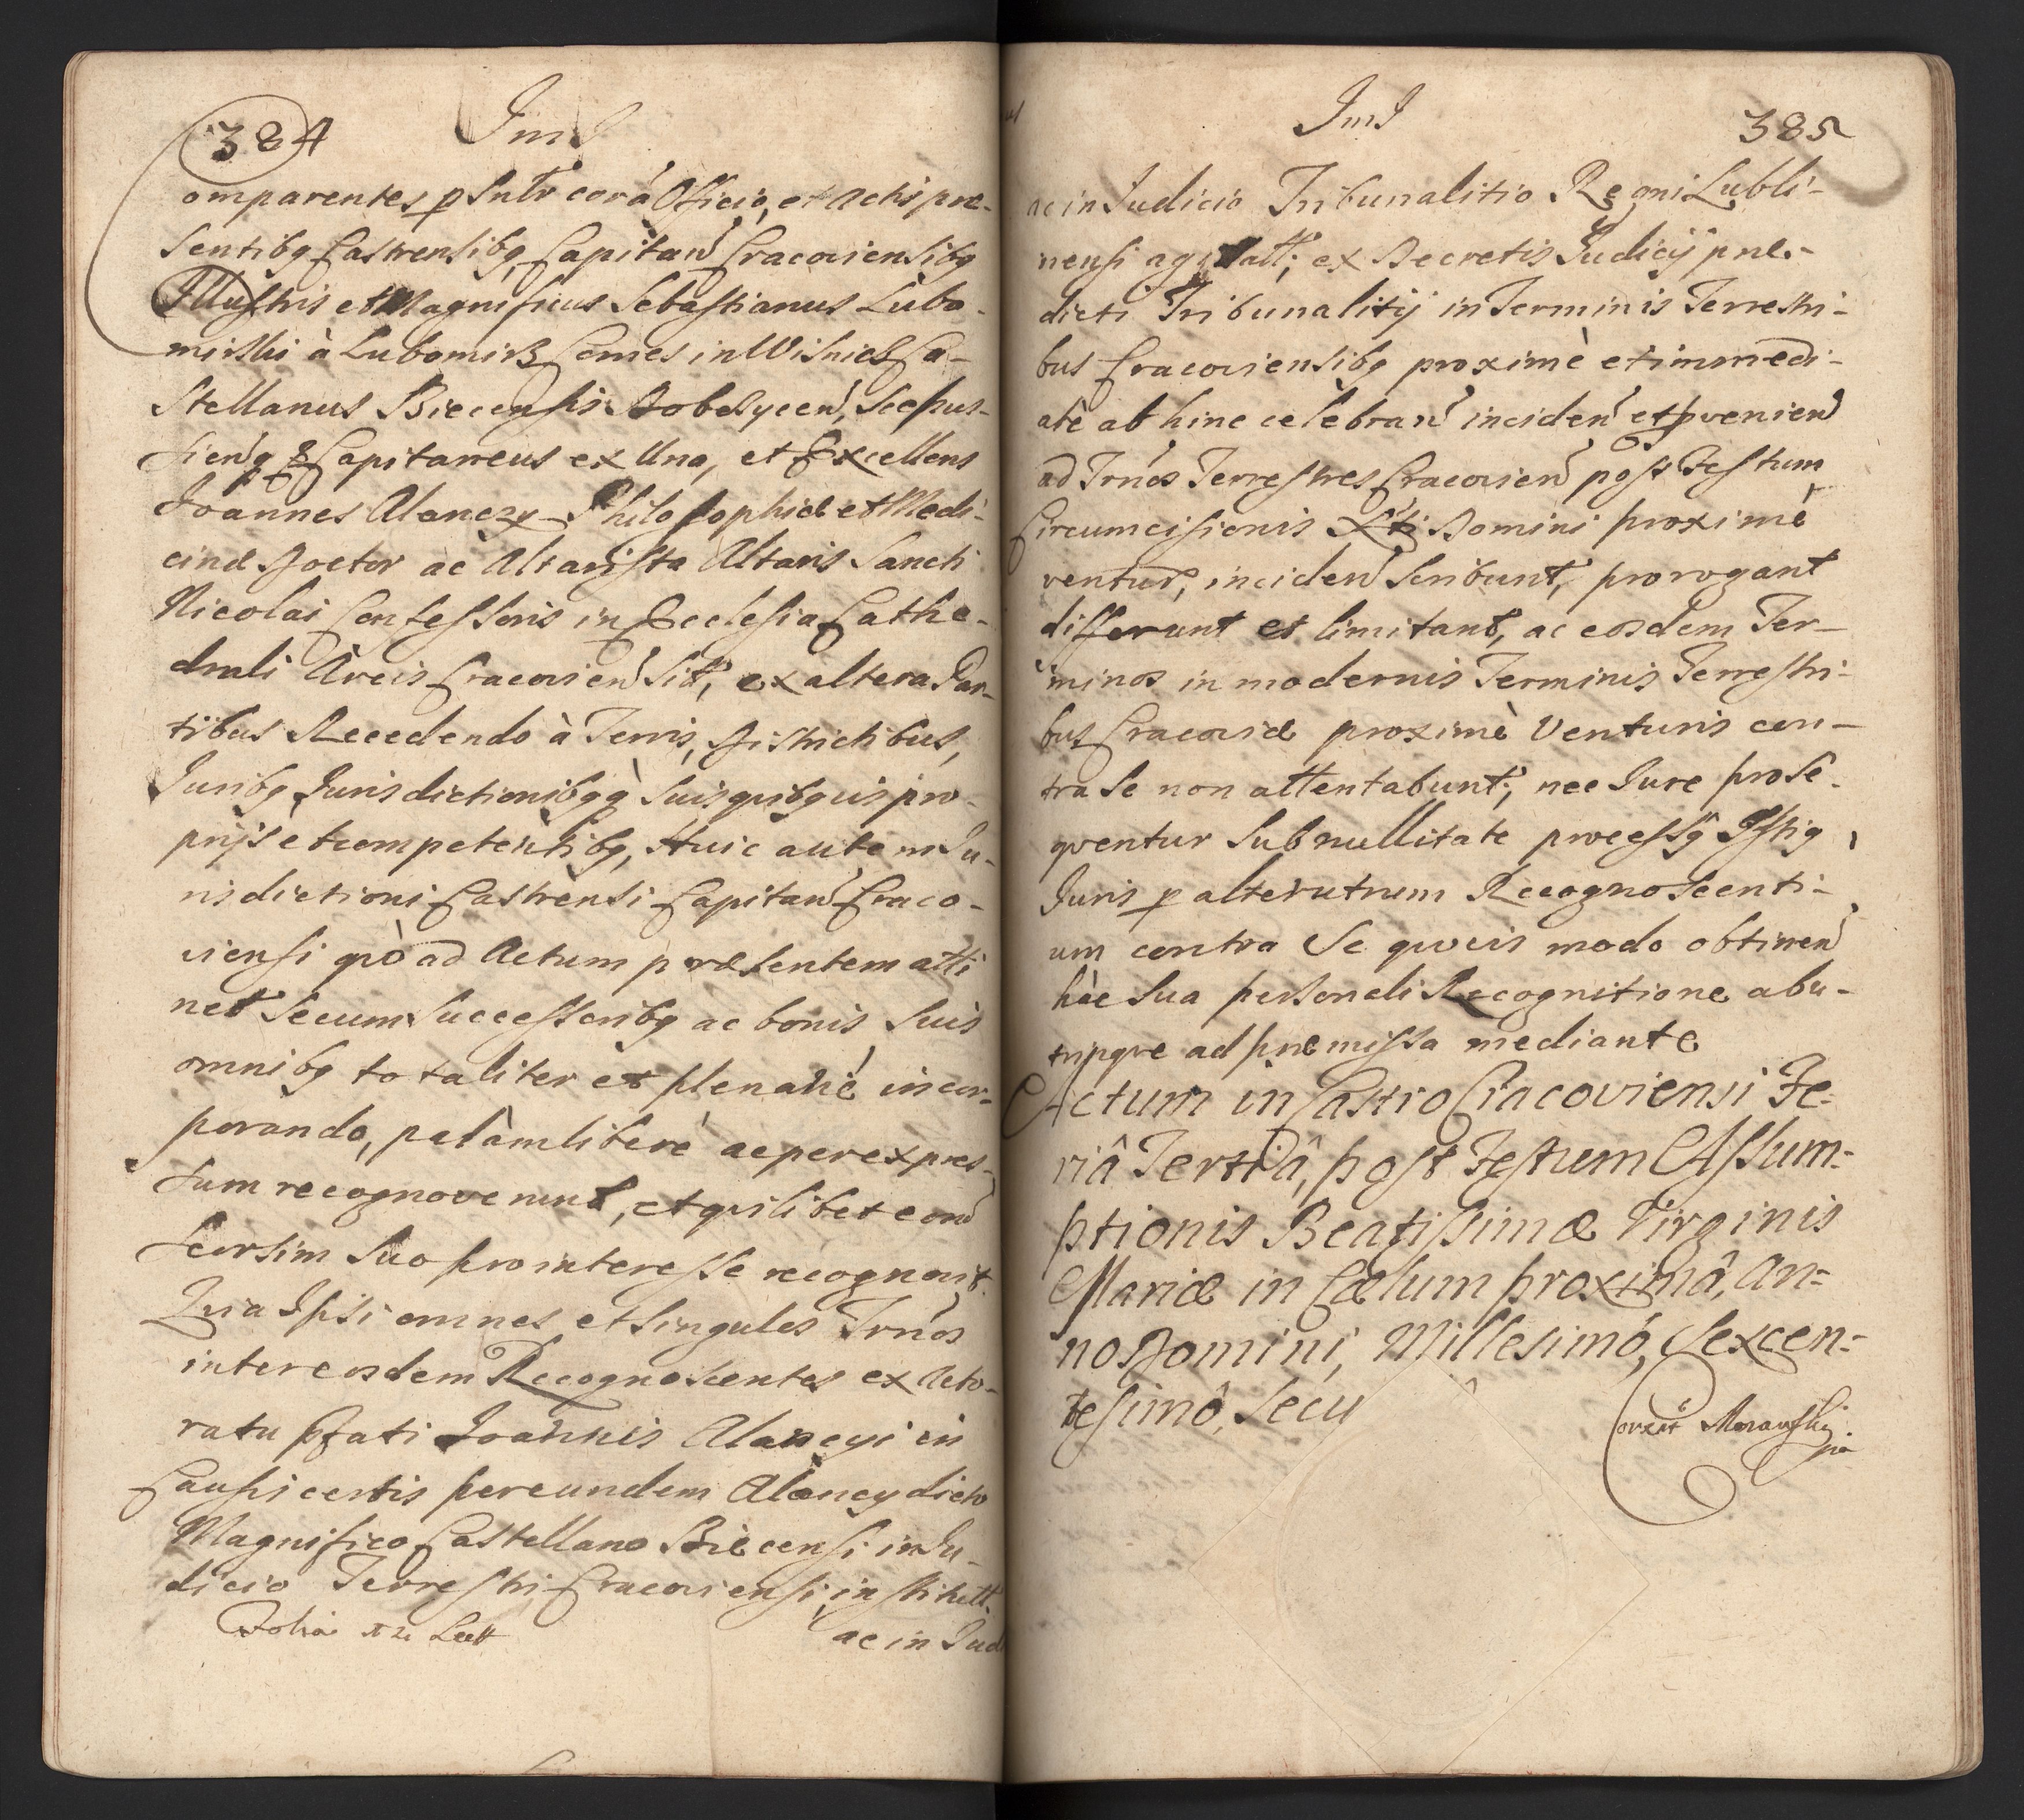 384 ImJ
omparentes p Sntr corá Officio, et Actis pre-
sentibq Castrensibq Capitan Cracoviensibq
Illustris et Magnificus Sebastianus Lubo-
mirski à Lubomirz Comes in Wisnicz Ca-
stellanus Biecensis Dobczycen, Scepus-
sienq & Capitaneus ex Una, et Excellens
Joannes Alanczy Philosophiæ et Medi-
cinæ Doctor ac Altarista Altaris Sancti
Nicolai Confessoris in Ecclesia Cathe-
drali Arcis Cracovien Sit, ex altera Par-
tibus Recedendo à Terris, Districtibus,
Juribq Jurisdictionibqq Suis quibquis pro-
prijs et competentibq, Huic autem Ju-
risdictioni Castrensi Capitan Craco-
viensi quò ad Actum præsentem atti
net Secum Successoribq ac bonis Suis
omnibq totaliter et plenariè incor-
porando, palàm liberè ac per expres-
sum recognoverunt, et quilibet eorū
seorsim Suo pro interesse recognovit.
Quia Ipsi omnes et singulos Trnós
inter eosdem Recognoscentes ex Acto-
ratu pfati Joannis Alanczi in
Causis certis per eundem Alanczy dicto
Magnifico Castellano Biecensi in Ju-
dicio Terrestri Cracoviensi, institutt.
ac in Jud
ImJ 385
ac in Judicio Tribunalitio Regni Lubli-
nensi agitatt, ex Decretis Judicij præ-
dicti Tribunalitij in Terminis Terrestri-
bus Cracoviensibq proximè et immedi-
atè ab hinc celebran inciden et pvenien
ad Trnós Terrestres Cracovien post Festum
Circumcisionis Xti Domini proximè
ventur, inciden scribunt, prorogant
differunt et limitant, ac eosdem Ter-
minos in modernis Terminis Terrestri-
bus Cracoviæ proximè Venturis con-
tra Se non attentabunt, nec Jure prose-
quentur Sub nullitate processq Istiq
Juris p alterutrum Recognoscenti-
um contra Se quovis modo obtinen
hàc Sua personali Recognitione
ad præmissa mediante
Actum in Castro Cracoviensi Fe-
riâ Tertiâ, post Festum Assum-
ptionis Beatissimæ Virginis
Mariæ in Cælum proximâ, An-
no Domini, Millesimô, Sexcen-
tesimô, Secu
Morawski